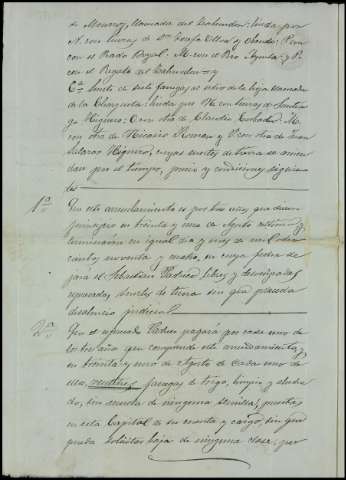 de Monroy, llamada del Calandon: linda por
N. con tierras de Dn Josefa Oliva y Conde: P. con
con el Prado Boyal: M. con el Pro y P.
con el Regato del Calandon= y
6a Suerte de siete fanegas al sitio de la hoja llamada
de la Charqueta: linda por N. con tierras de Santia-
go Higuero; O. con otra de Claudio M.
con otra de Nicasio Roman y P. con otra de Juan
Higuero; cuyas suertes de tierra se arrien-
dan por el tiempo, precio y condiciones siguien-
tes
1a. Que este arrendamiento es por tres años, que dieron
principio en treinta y uno de Agosto último y
terminarán en igual dia y mes de mil ocho-
cientos noventa y cuya fecha de-
jará el Sebastian libres y desocupadas
espresadas suertes de tierra sin que preceda
desahucio judicial
2a. Que el espresado pagará por cada uno de
los tres años que comprende este arrendamiento, y
en treinta y uno de Agosto de cada uno de
ellos, fanegas de trigo, limpio y
do, sin mezcla de ninguna semilla, puestas
en esta Capital de su cuenta y cargo, sin que
pueda solicitar baja de ninguna clase, por